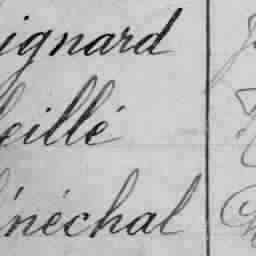 ignard
eillé
énéchal